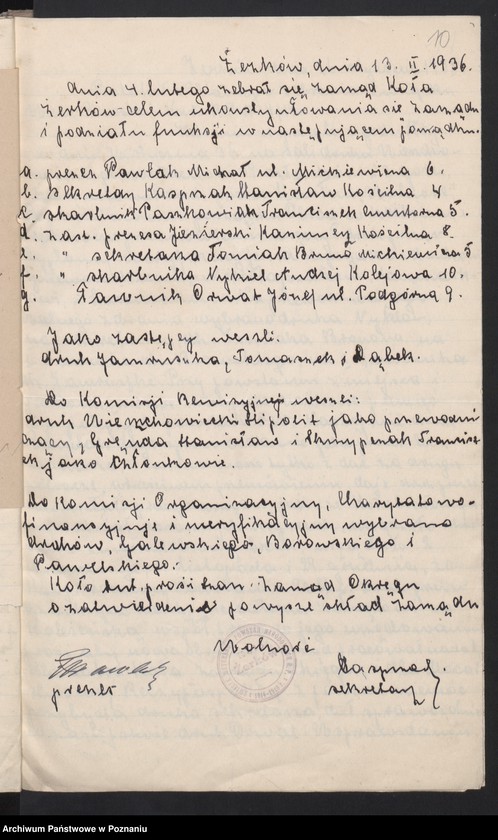 10
Żerków, dnia 13. II. 1936.
dnia 4. lutego zebrał się zarząd Koła
Żerków celem ukonstytuowania się zarządu
i podziału funkcji w następującem porządku.
a. prezes Pawlak Michał ul. Mickiewicza 6.
b. sekretarz Kasprzak Stanisław Kościelna 4
c. skarbnik Paszkowiak Franciszek Cmentarna 5.
d. zast. prezesa Jezierski Kazimierz Kościelna 8.
e. " sekretarza Tomiak Bruno Mickiewicza 5
f. " skarbnika Andrzej Kolejowa 10.
g. Ławnik Orwat Józef ul. Podgórna 9.
Jako zastępcy weszli.
druh Jamruszka, Tomaszek i Dąbek.
Do Komisji Rewizyjnej weszli:
druh Wierzchowiecki Hipolit jako przewodni
czący, Gręda Stanisław i Skrzypczak Francisz
ek jako członkowie.
Do Komisji Organizacyjnej, Charytatywno-
finansowej i weryfikacyjnej wybrano
druhów, Galewskiego, Borowskiego i
Pawelskiego.
Koło tut. prosi szan. Zarząd Okręgu
o zatwierdzenie powyższe skład zarządu
Wolność
prezes
Kasprzak
sekretarz
Archiwum Państwowe w Poznaniu